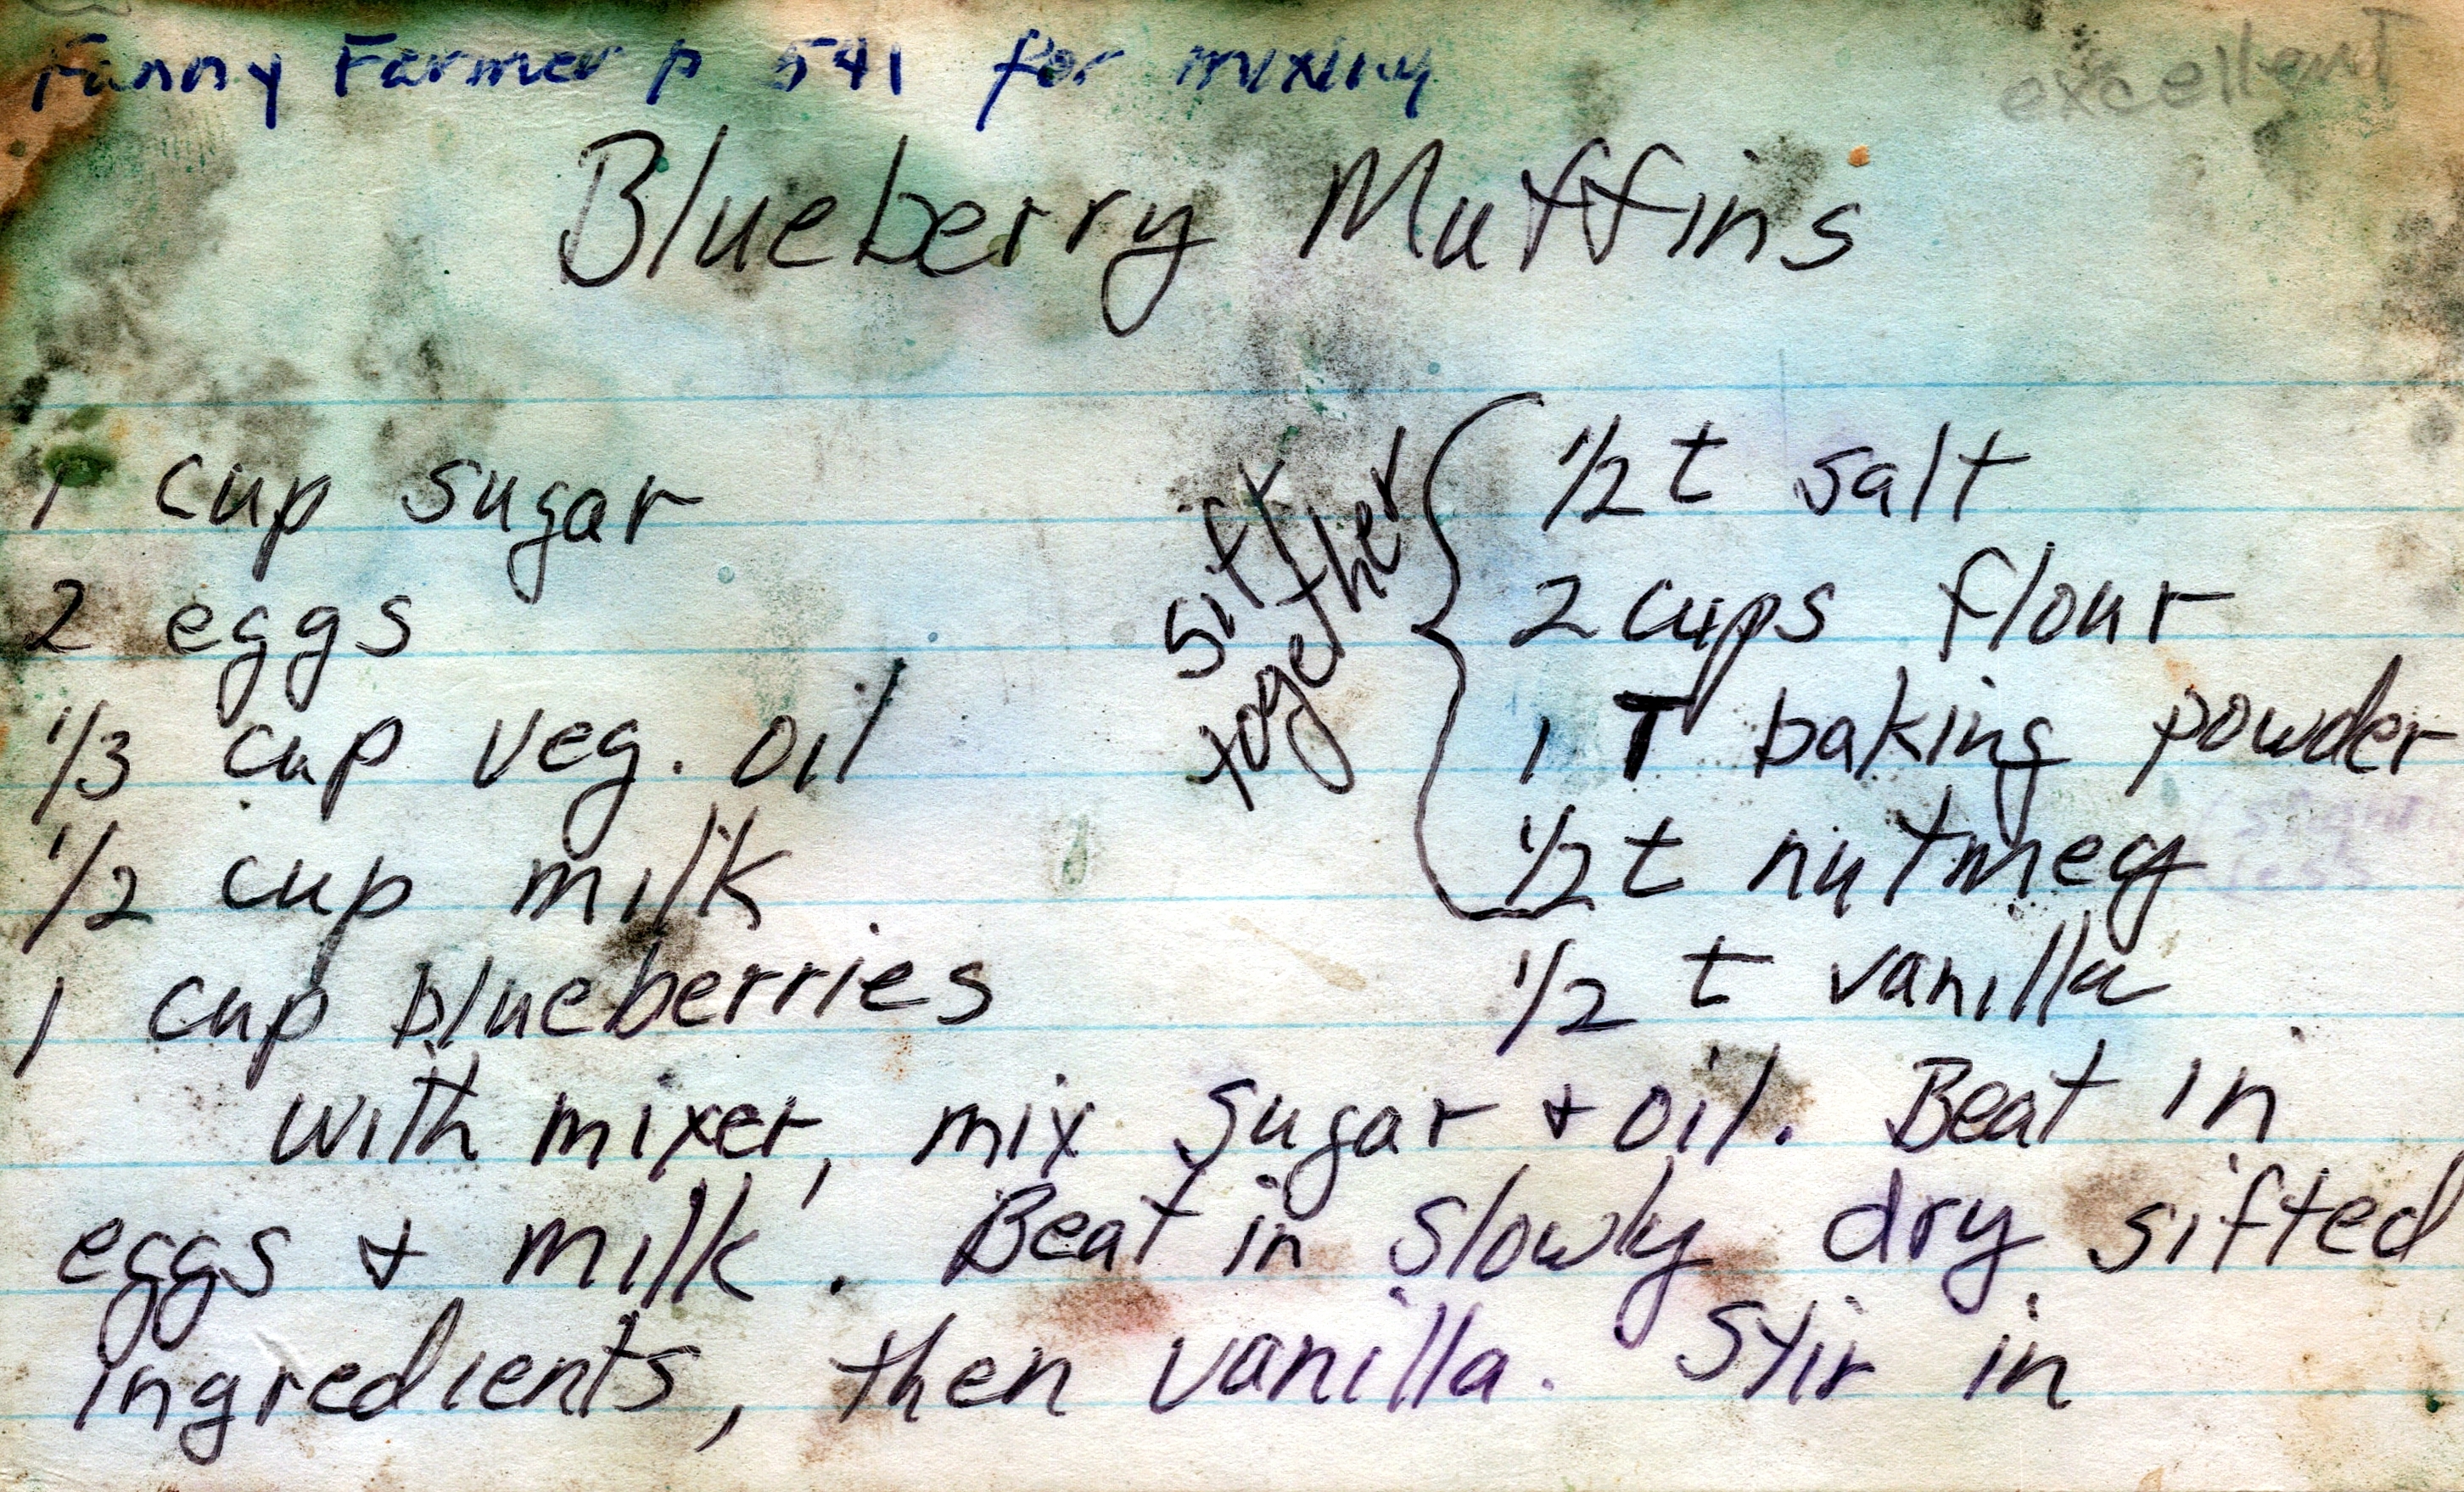 Fanny Farmer p 541 for mixing
excellent
Blueberry Muffins
1 cup sugar
2 eggs
1/3 cup veg. oil
1/2 cup milk
1 cup blueberries
sift
together
1/2 t salt
2 cups flour
1 T baking powder
1/2 t nutmeg
less
1/2 t vanilla
with mixer, mix sugar + oil. Beat in
eggs + milk. Beat in slowly dry sifted
ingredients, then vanilla. Stir in